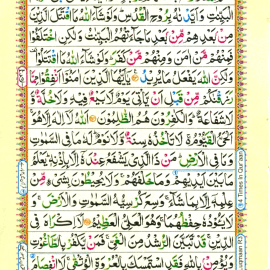 الْبَيِّنٰتِ وَاَيَّدْنٰهُ بِرُوْحِ الْقُدُسِ ؕ وَلَوْ شَآءَ اللّٰهُ مَا اقْتَتَلَ الَّذِيْنَ
مِنْۢ بَعْدِهِمْ مِّنْۢ بَعْدِ مَا جَآءَتْهُمُ الْبَيِّنٰتُ وَلٰكِنِ اخْتَلَفُوْا
فَمِنْهُمْ مَّنْ اٰمَنَ وَمِنْهُمْ مَّنْ كَفَرَ ؕ وَلَوْ شَآءَ اللّٰهُ مَا اقْتَتَلُوْا
وَلٰكِنَّ اللّٰهَ يَفْعَلُ مَا يُرِيْدُ ۝ يٰۤاَيُّهَا الَّذِيْنَ اٰمَنُوْۤا اَنْفِقُوْا مِمَّا
رَزَقْنٰكُمْ مِّنْ قَبْلِ اَنْ يَّاْتِيَ يَوْمٌ لَّا بَيْعٌ فِيْهِ وَلَا خُلَّةٌ وَّ
لَا شَفَاعَةٌ ؕ وَالْكٰفِرُوْنَ هُمُ الظّٰلِمُوْنَ ۝ اَللّٰهُ لَاۤ اِلٰهَ اِلَّا هُوَ ۚ
اَلْحَيُّ الْقَيُّوْمُ ۚ لَا تَاْخُذُهٗ سِنَةٌ وَّلَا نَوْمٌ ؕ لَهٗ مَا فِي السَّمٰوٰتِ
وَمَا فِي الْاَرْضِ ؕ مَنْ ذَا الَّذِيْ يَشْفَعُ عِنْدَهٗۤ اِلَّا بِاِذْنِهٖ ؕ يَعْلَمُ
مَا بَيْنَ اَيْدِيْهِمْ وَمَا خَلْفَهُمْ ۚ وَلَا يُحِيْطُوْنَ بِشَيْءٍ مِّنْ
عِلْمِهٖۤ اِلَّا بِمَا شَآءَ ۚ وَسِعَ كُرْسِيُّهُ السَّمٰوٰتِ وَالْاَرْضَ ۚ وَ
لَا يَـُٔوْدُهٗ حِفْظُهُمَا ۚ وَهُوَ الْعَلِيُّ الْعَظِيْمُ ۝ لَاۤ اِكْرَاهَ فِي
الدِّيْنِ ۙ قَدْ تَّبَيَّنَ الرُّشْدُ مِنَ الْغَيِّ ۚ فَمَنْ يَّكْفُرْ بِالطَّاغُوْتِ
وَيُؤْمِنْۢ بِاللّٰهِ فَقَدِ اسْتَمْسَكَ بِالْعُرْوَةِ الْوُثْقٰى ۗ لَا انْفِصَامَ
14 Times In Qur'aan
Luqmaan R3